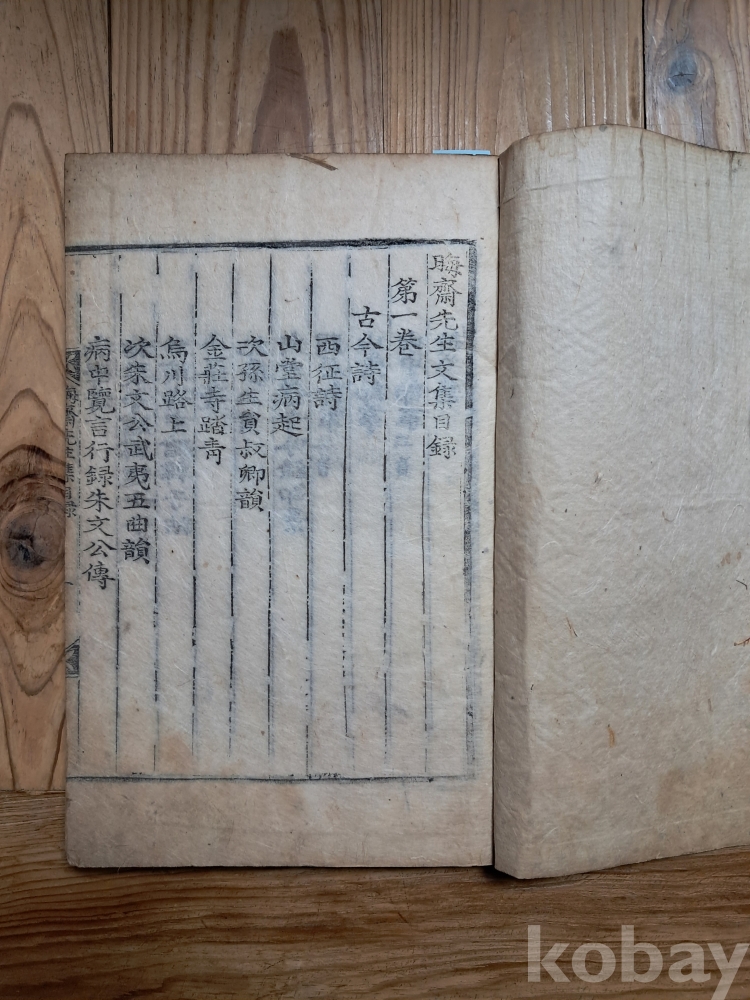 晦齋先生文集目録
第一卷
古今詩
西征詩
山堂病起
次孫生員叔卿韻
金莊寺踏靑
烏川路上
次朱文公武夷五曲韻
病中覽言行録朱文公傳
晦齋先生集目録
kobay